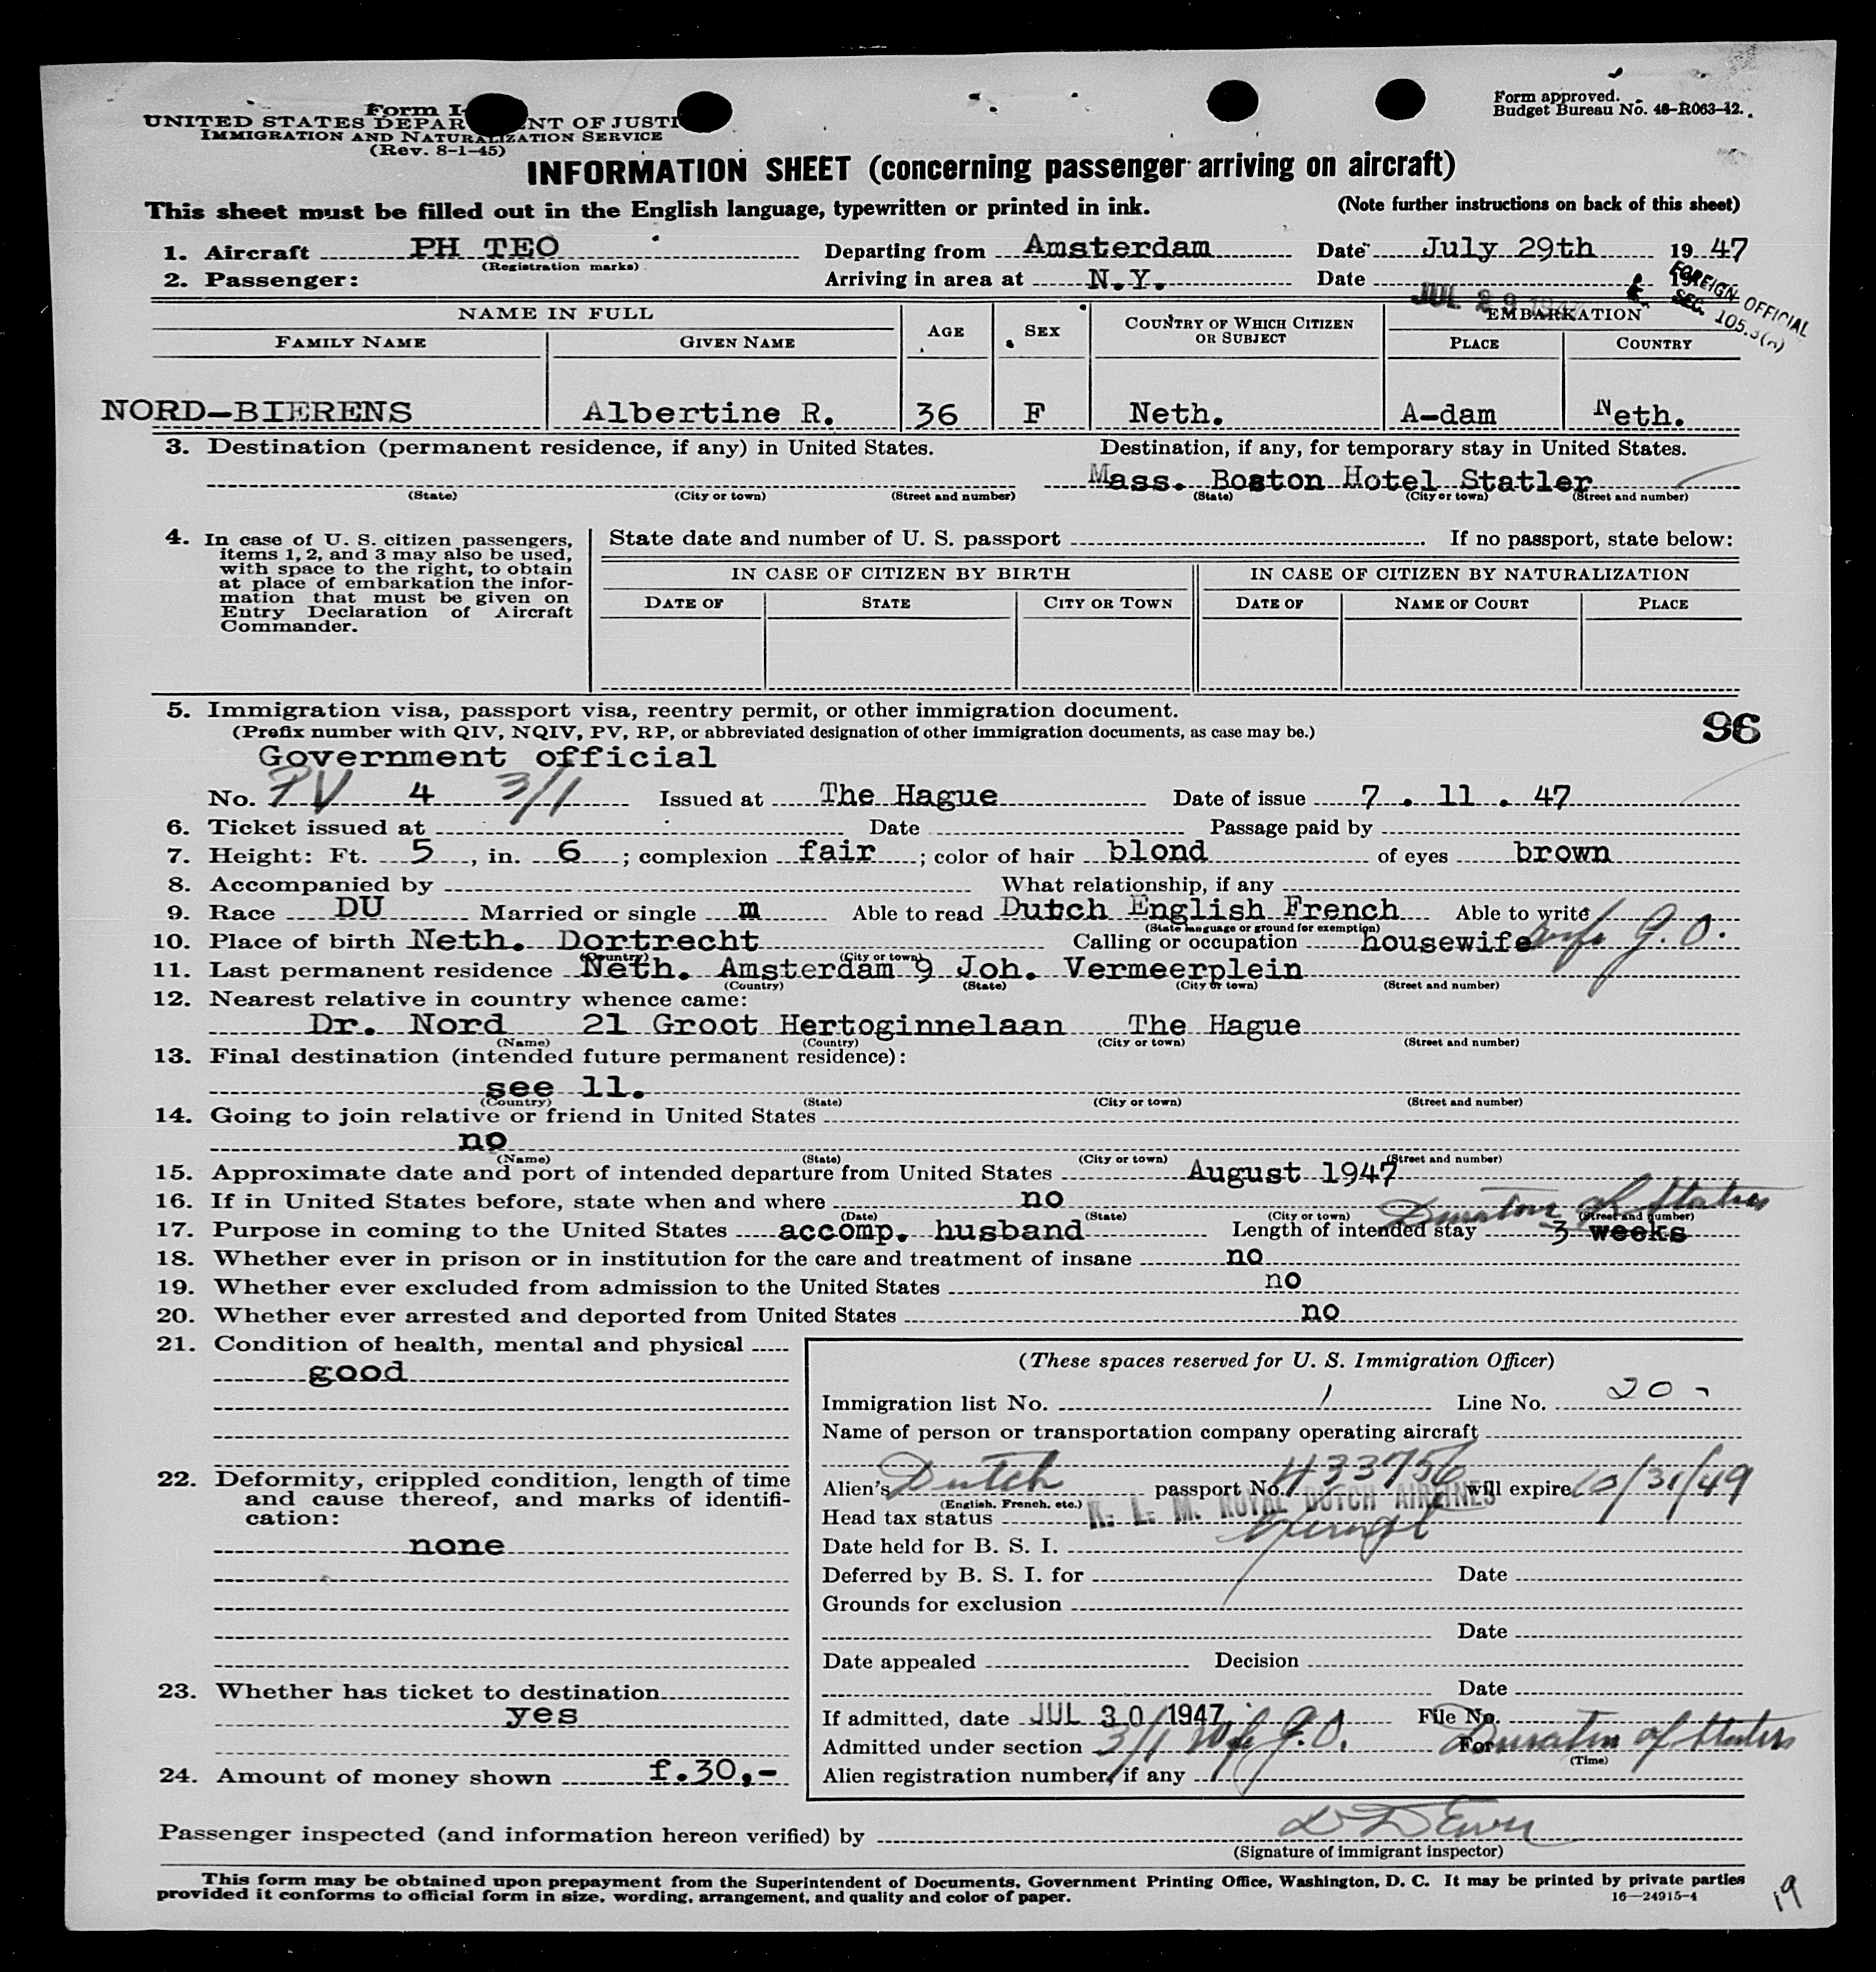 Form I-
UNITED STATES DEPAR NT OF JUSTI
IMMIGRATION AND NATURALIZATION SERVICE
(Rev. 8-1-45)
Form approved.
Budget Bureau No. 43-R063-42.
INFORMATION SHEET (concerning passenger arriving on aircraft)
This sheet must be filled out in the English language, typewritten or printed in ink. (Note further instructions on back of this sheet)
1. Aircraft PH TEO Departing from Amsterdam Date July 29th 19 47
(Registration marks)
2. Passenger: Arriving in area at N.Y. Date JUL 29 1947 19
FOREIGN OFFICIAL
SEC. 105.3(a)
NAME IN FULL AGE SEX COUNTRY OF WHICH CITIZEN OR SUBJECT EMBARKATION
FAMILY NAME GIVEN NAME PLACE COUNTRY
NORD-BIERENS Albertine R. 36 F Neth. A-dam Neth.
3. Destination (permanent residence, if any) in United States. Destination, if any, for temporary stay in United States.
Mass. Boston Hotel Statler
(State) (City or town) (Street and number) (State) (City or town) (Street and number)
4. In case of U. S. citizen passengers, items 1, 2, and 3 may also be used, with space to the right, to obtain at place of embarkation the information that must be given on Entry Declaration of Aircraft Commander.
State date and number of U. S. passport If no passport, state below:
IN CASE OF CITIZEN BY BIRTH IN CASE OF CITIZEN BY NATURALIZATION
DATE OF STATE CITY OR TOWN DATE OF NAME OF COURT PLACE
5. Immigration visa, passport visa, reentry permit, or other immigration document.
(Prefix number with QIV, NQIV, PV, RP, or abbreviated designation of other immigration documents, as case may be.)
96
Government official
No. PV 4 3/1 Issued at The Hague Date of issue 7 . 11 . 47
6. Ticket issued at Date Passage paid by
7. Height: Ft. 5, in. 6; complexion fair; color of hair blond of eyes brown
8. Accompanied by What relationship, if any
9. Race DU Married or single m Able to read Dutch English French Able to write
(State language or ground for exemption)
10. Place of birth Neth. Dortrecht Calling or occupation housewife wife G.O.
(Country) (City or town)
11. Last permanent residence Neth. Amsterdam 9 Joh. Vermeerplein
(Country) (State) (City or town) (Street and number)
12. Nearest relative in country whence came:
Dr. Nord 21 Groot Hertoginnelaan The Hague
(Name) (Country) (City or town) (Street and number)
13. Final destination (intended future permanent residence):
see 11.
(Country) (State) (City or town) (Street and number)
14. Going to join relative or friend in United States
no
(Name) (State) (City or town) (Street and number)
15. Approximate date and port of intended departure from United States August 1947
16. If in United States before, state when and where no
(Date) (State) (City or town) (Street and number)
Duration of Status
17. Purpose in coming to the United States accomp. husband Length of intended stay 3 weeks
18. Whether ever in prison or in institution for the care and treatment of insane no
19. Whether ever excluded from admission to the United States no
20. Whether ever arrested and deported from United States no
21. Condition of health, mental and physical
good
22. Deformity, crippled condition, length of time and cause thereof, and marks of identification:
none
23. Whether has ticket to destination
yes
24. Amount of money shown f.30,-
(These spaces reserved for U. S. Immigration Officer)
Immigration list No. 1 Line No. 20
Name of person or transportation company operating aircraft
Alien's Dutch passport No. 433756 will expire 10/31/49
(English, French, etc.)
K. L. M. ROYAL DUTCH AIRLINES
Head tax status exempt
Date held for B. S. I.
Deferred by B. S. I. for Date
Grounds for exclusion
Date
Date appealed Decision
Date
If admitted, date JUL 30 1947 File No.
Admitted under section 3/1 Wife G.O. For Duration of Status
(Time)
Alien registration number, if any
Passenger inspected (and information hereon verified) by
(Signature of immigrant inspector)
This form may be obtained upon prepayment from the Superintendent of Documents, Government Printing Office, Washington, D. C. It may be printed by private parties
provided it conforms to official form in size, wording, arrangement, and quality and color of paper. 16—24915-4
19